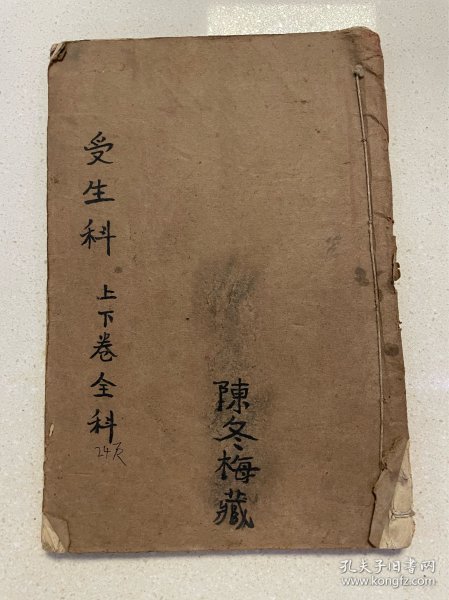 受生科
上下卷全科
24页
陳冬梅藏
孔夫子旧书网
www.kongfz.com